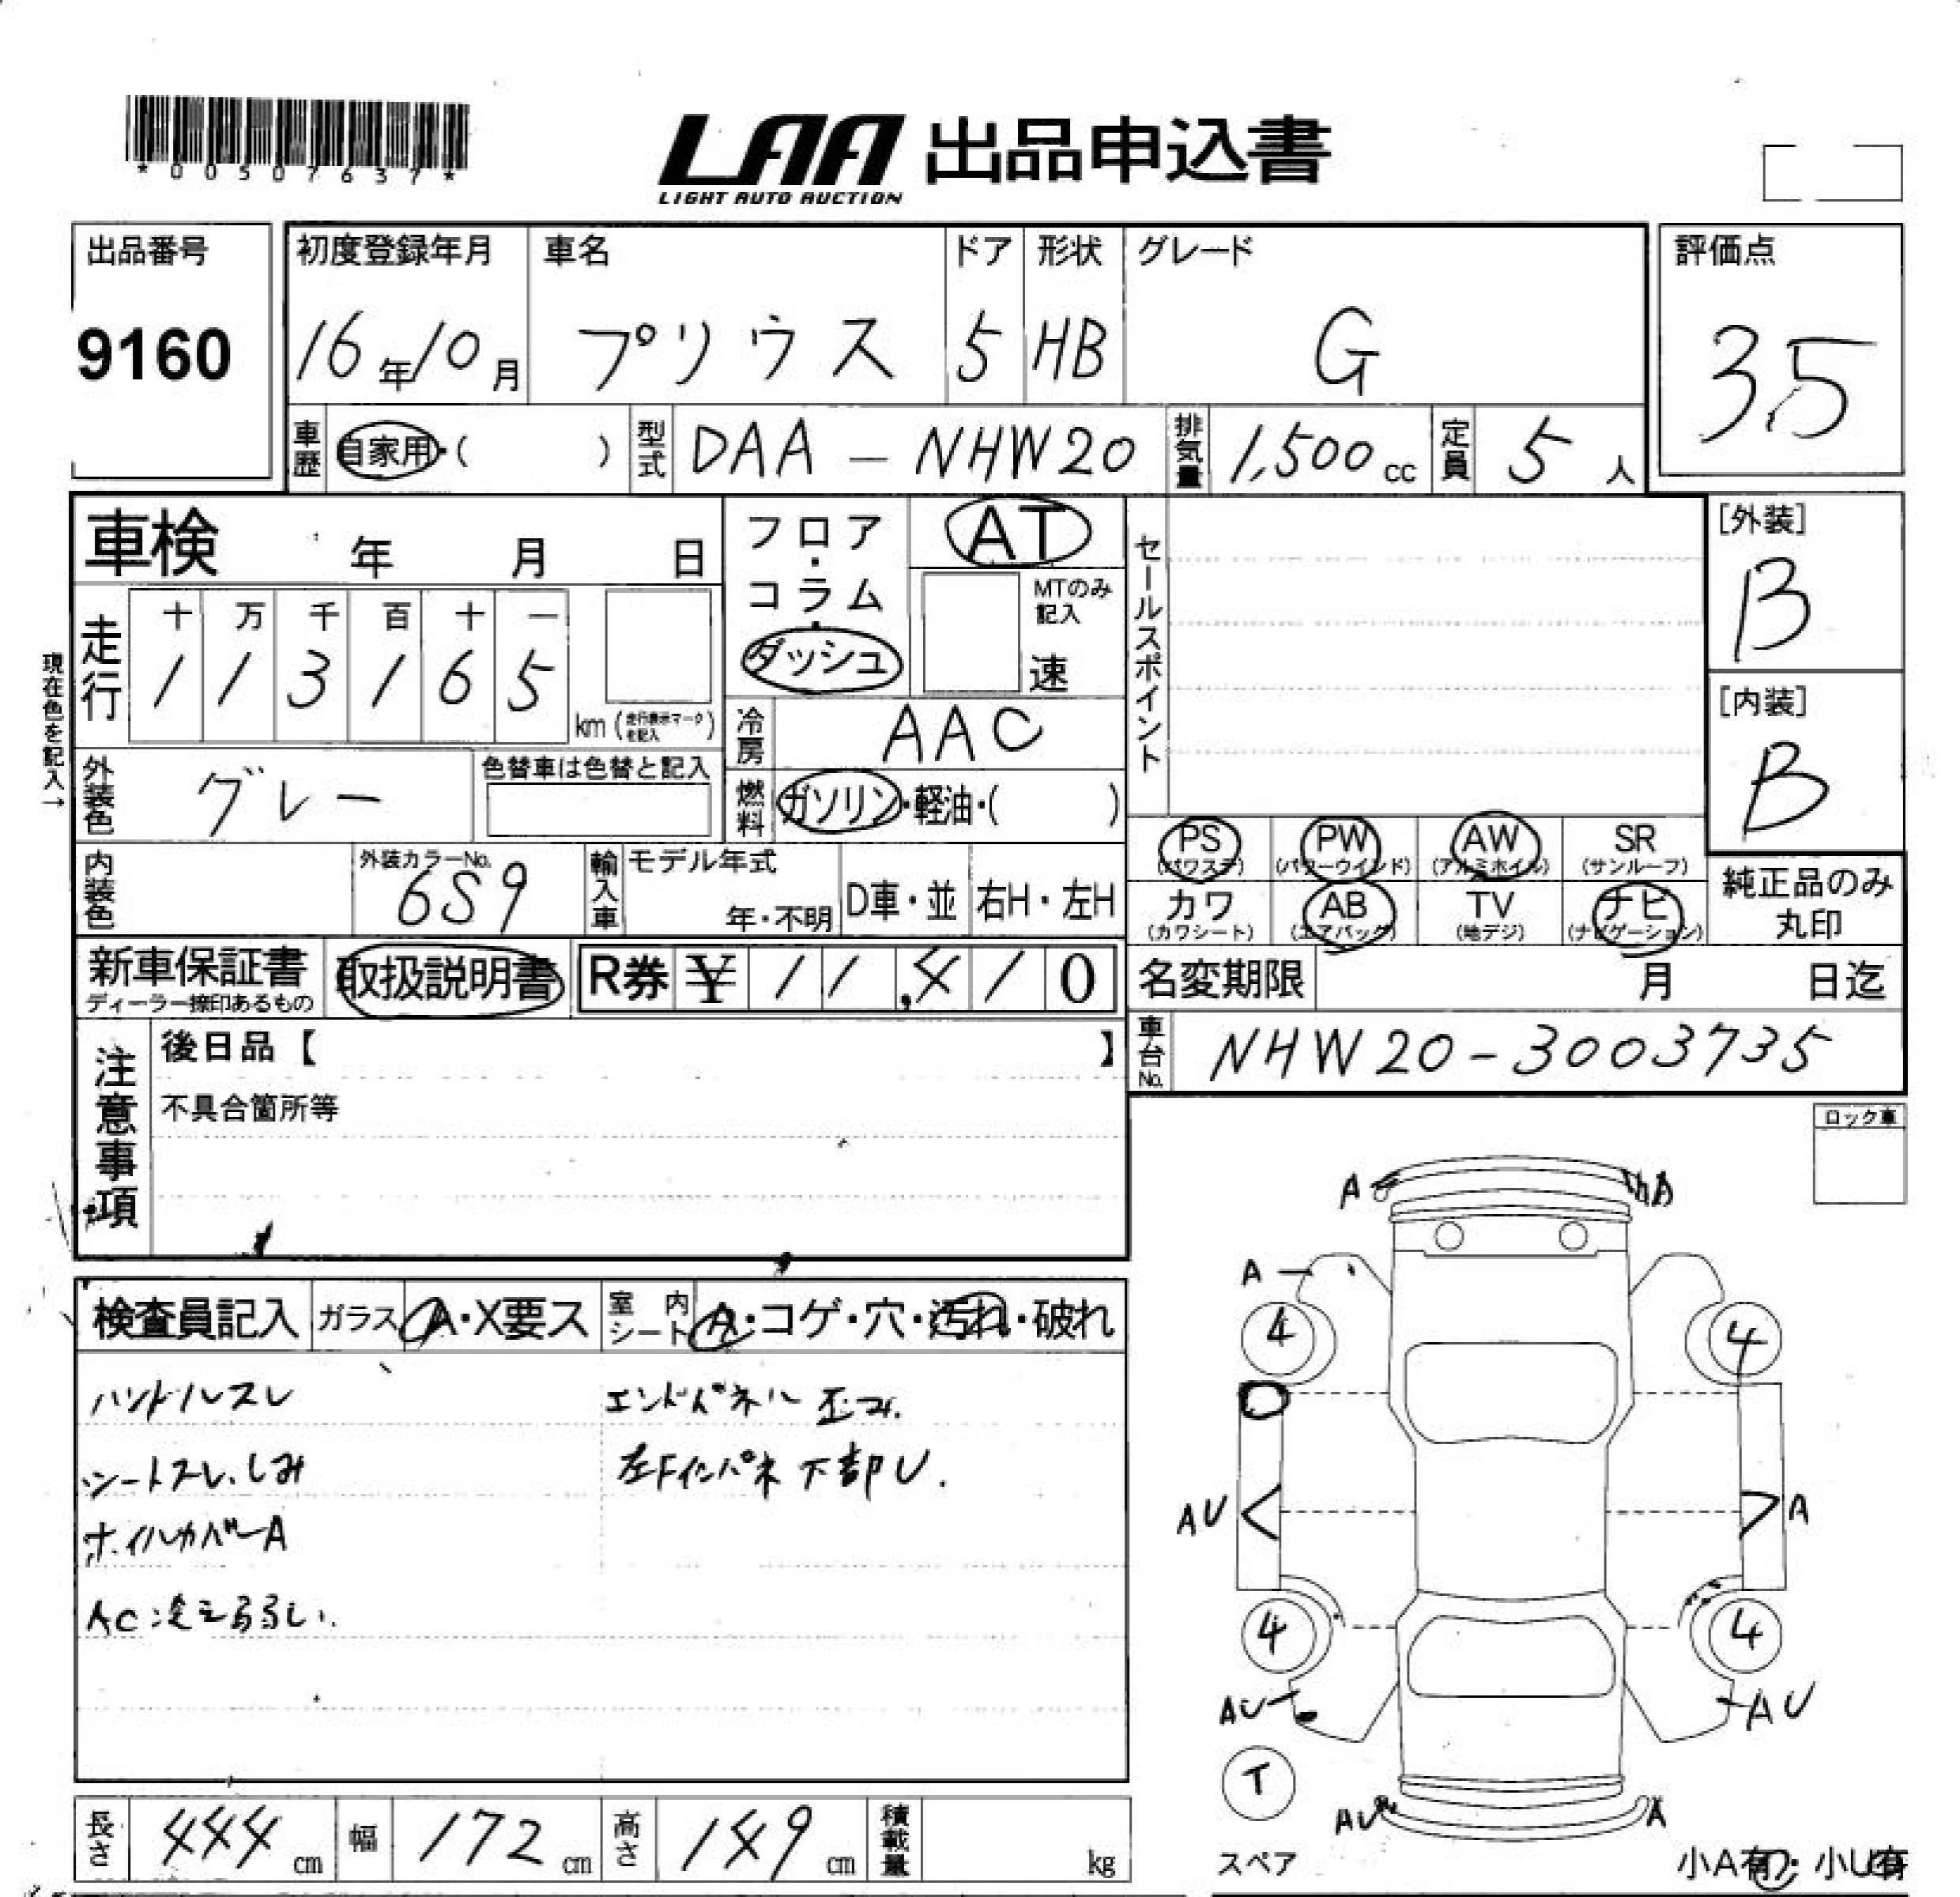 *00507637*
LAA 出品申込書
LIGHT AUTO AUCTION
出品番号
9160
初度登録年月
16年10月
車名
プリウス
ドア
5
形状
HB
グレード
G
評価点
3.5
車歴
自家用・( )
型式
DAA-NHW20
排気量
1,500cc
定員
5人
車検 年 月 日
走行
十 万 千 百 十 一
1 1 3 1 6 5
km (走行表示マークを記入)
現在色を記入→
外装色
グレー
色替車は色替と記入
内装色
外装カラーNo.
6S9
フロア・コラム・ダッシュ
AT
MTのみ記入
速
冷房
AAC
燃料
ガソリン・軽油・( )
輸入車
モデル年式
年・不明
D車・並
右H・左H
セールスポイント
[外装]
B
[内装]
B
PS
(パワステ)
PW
(パワーウインド)
AW
(アルミホイル)
SR
(サンルーフ)
カワ
(カワシート)
AB
(エアバック)
TV
(地デジ)
ナビ
(ナビゲーション)
純正品のみ
丸印
新車保証書
ディーラー捺印あるもの
取扱説明書
R券 ¥11,410
名変期限 月 日迄
車台No.
NHW20-3003735
注意事項
後日品【 】
不具合箇所等
ロック車
検査員記入
ガラス
A・X要ス
室内シート
A・コゲ・穴・汚れ・破れ
ハンドルスレ
シートスレ、しみ
ホイルカバーA
エンドパネル
左Fインパネ下部U.
A
A
A
4
4
AU
A
4
4
AU
AU
T
スペア
AU
A
小A有・小U有
長さ
444cm
幅
172cm
高さ
149cm
積載量
kg